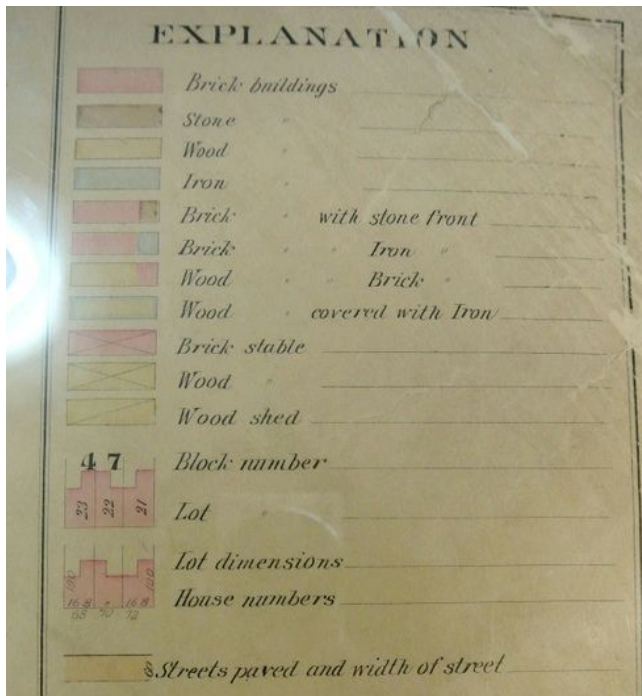 EXPLANATION
Brick buildings
Stone "
Wood "
Iron "
Brick " with stone front
Brick " " Iron "
Wood " " Brick "
Wood " covered with Iron
Brick stable
Wood "
Wood shed
47 Block number
23 22 21 Lot "
100 100 Lot dimensions
16.8 16.8 House numbers
68 70 72
60 Streets paved and width of street